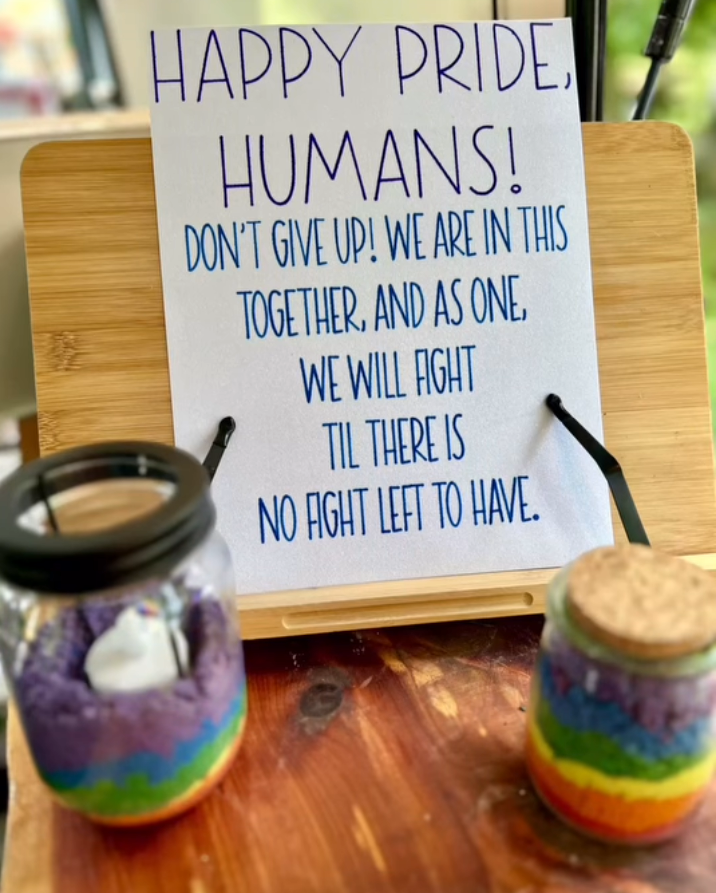 HAPPY PRIDE,
HUMANS!
DON'T GIVE UP! WE ARE IN THIS
TOGETHER, AND AS ONE,
WE WILL FIGHT
TIL THERE IS
NO FIGHT LEFT TO HAVE.